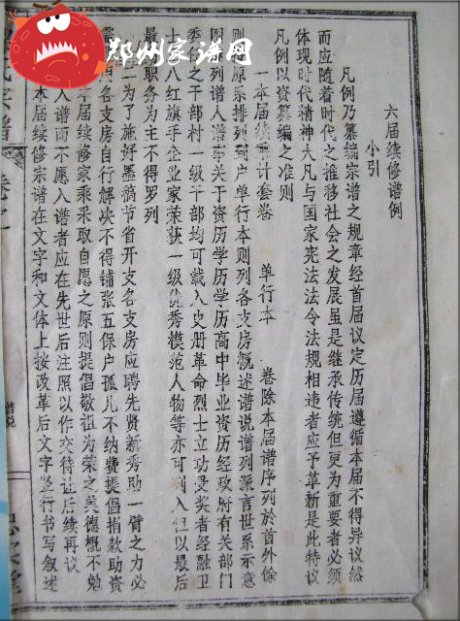 郑州家谱网
六届续修谱例
小引
凡例乃纂编宗谱之规章经首届议定历届遵循本届不得异议然
而应随着时代之推移社会之发展虽是继承传统但更为重要者必须
体现时代精神大凡与国家宪法法令法规相违者应予革新是此特议
凡例以资纂编之准则
一本届续 计套卷 单行本 卷除本届谱序列於首外馀
则 原系排列到户单行本则列各支房概述谱说谱列派言世系示意
图 列谱人谱 关于资历学历学历高中毕业资历经政府有关部门
委任之干部村一级干部均可载入史册革命烈士立功受奖者经融卫
士 八红旗手企业家荣获一级优秀模范人物等亦可列入但以最后
最 职务为主不得罗列
二为了施好墨稿节省开支各支房应聘先贤新秀助一臂之力必
需 各支房自行解决不得铺张五保户孤儿不纳费提倡捐款助资
本届续修家乘采取自愿之原则提倡敬祖为荣之美德概不勉
入谱而不愿入谱者应在先世后注照以作交待让后续再议
本届续修宗谱在文字和文体上按改革后文字竖行书写叙述
氏宗谱
卷之
谱说